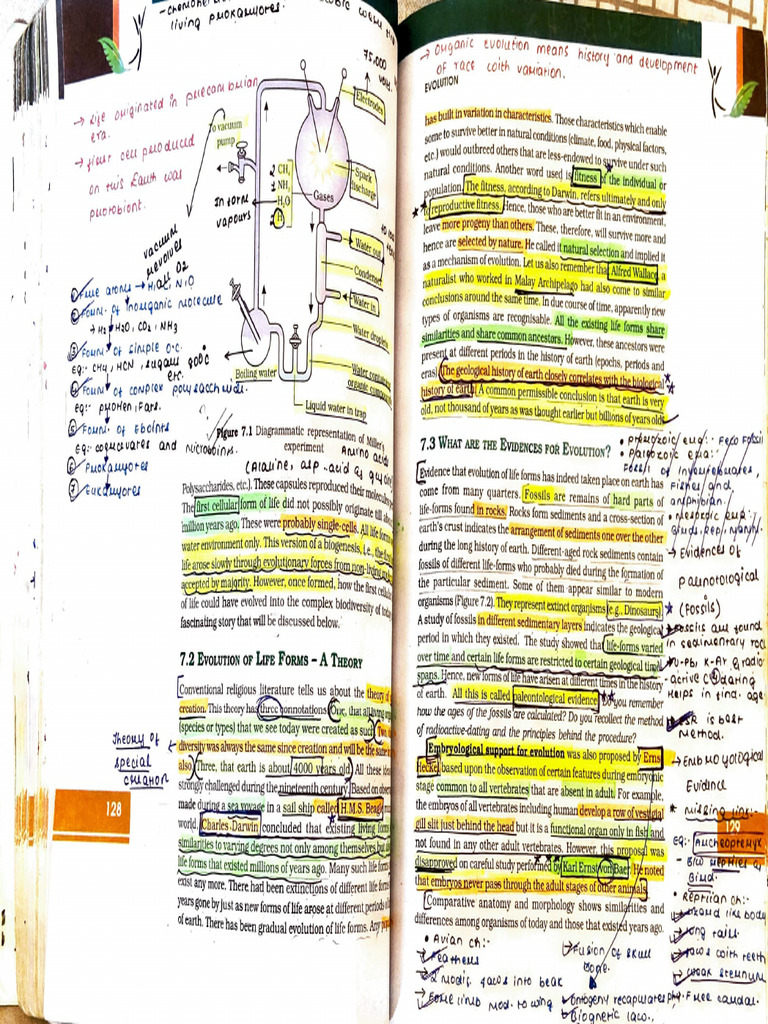 -chemohet
living prokaryotes.
→ life originated in precambrian
era.
→ first cell produced
on this Earth was
protobiont.
To vacuum
pump
75,000
volt.
Electrodes
Spark
discharge
2 CH₄
1 NH₃
H₂O
2 H₂
Gases
In form
vapours
Water out
Condenser
Water in
Water droplets
Boiling water
Liquid water in trap
① Free atoms → H, C, N, O
② Form. of Inorganic molecule
→ H₂, H₂O, CO₂, NH₃
③ Form. of simple o.c.
eg:- CH₄, HCN, sugars
etc.
④ Form. of complex polysaccharide.
eg:- protien, Fats.
⑤ Form. of Eobionts
eg: coacervates and microbions.
⑥ Prokaryotes
⑦ Eukaryotes
Figure 7.1 Diagrammatic representation of Miller's
experiment
Amino acids
(Alanine, asp. acid
Polysaccharides, etc.). These capsules reproduced their molecules
The first cellular form of life did not possibly originate till
million years ago. These were probably single-cells. All life forms
water environment only. This version of a biogenesis, i.e., the first
life arose slowly through evolutionary forces from non-living
accepted by majority. However, once formed, how the first cellular
of life could have evolved into the complex biodiversity of today
fascinating story that will be discussed below.
7.2 EVOLUTION OF LIFE FORMS – A THEORY
Conventional religious literature tells us about the theory of
creation. This theory has three connotations. One, that all living
species or types) that we see today were created as such. Two,
diversity was always the same since creation and will be the same
also. Three, that earth is about 4000 years old. All these
strongly challenged during the nineteenth century. Based on
made during a sea voyage in a sail ship called H.M.S. Beagle
world, Charles Darwin concluded that existing living forms
similarities to varying degrees not only among themselves but
life forms that existed millions of years ago. Many such life
exist any more. There had been extinctions of different life
years gone by just as new forms of life arose at different periods
of earth. There has been gradual evolution of life forms. Any
Theory of
special
creation
128
→ Organic evolution means history and development
of race with variation.
EVOLUTION
has built in variation in characteristics. Those characteristics which enable
some to survive better in natural conditions (climate, food, physical factors,
etc.) would outbreed others that are less-endowed to survive under such
natural conditions. Another word used is fitness of the individual or
population. The fitness, according to Darwin, refers ultimately and only
to reproductive fitness. Hence, those who are better fit in an environment,
leave more progeny than others. These, therefore, will survive more and
hence are selected by nature. He called it natural selection and implied it
as a mechanism of evolution. Let us also remember that Alfred Wallace, a
naturalist who worked in Malay Archipelago had also come to similar
conclusions around the same time. In due course of time, apparently new
types of organisms are recognisable. All the existing life forms share
similarities and share common ancestors. However, these ancestors were
present at different periods in the history of earth (epochs, periods and
eras). The geological history of earth closely correlates with the biological
history of earth. A common permissible conclusion is that earth is very
old, not thousand of years as was thought earlier but billions of years old.
7.3 WHAT ARE THE EVIDENCES FOR EVOLUTION?
Evidence that evolution of life forms has indeed taken place on earth has
come from many quarters. Fossils are remains of hard parts of
life-forms found in rocks. Rocks form sediments and a cross-section of
earth's crust indicates the arrangement of sediments one over the other
during the long history of earth. Different-aged rock sediments contain
fossils of different life-forms who probably died during the formation of
the particular sediment. Some of them appear similar to modern
organisms (Figure 7.2). They represent extinct organisms (e.g., Dinosaurs).
A study of fossils in different sedimentary layers indicates the geological
period in which they existed. The study showed that life-forms varied
over time and certain life forms are restricted to certain geological time
spans. Hence, new forms of life have arisen at different times in the history
of earth. All this is called paleontological evidence. Do you remember
how the ages of the fossils are calculated? Do you recollect the method
of radioactive-dating and the principles behind the procedure?
Embryological support for evolution was also proposed by Ernst
Heckel based upon the observation of certain features during embryonic
stage common to all vertebrates that are absent in adult. For example,
the embryos of all vertebrates including human develop a row of vestigial
gill slit just behind the head but it is a functional organ only in fish and
not found in any other adult vertebrates. However, this proposal was
disapproved on careful study performed by Karl Ernst von Baer. He noted
that embryos never pass through the adult stages of other animals.
Comparative anatomy and morphology shows similarities and
differences among organisms of today and those that existed years ago.
Fossil of invertebrates,
Fishes and
amphibian.
→ Evidences of
paleontological
★ (Fossils)
→ Fossils are found
in sedimentary rock
→ U-Pb, K-Ar, & radio
-active C dating
helps in find. age
→ ESR is best
method.
→ Embryological
Evidence
★ missing link:-
eg: Archeopteryx
129
Bird.
• Reptilian ch:-
→ Lizard like body
→ long tail.
→ Jaws with teeth
→ weak sternum
→ Free caudal.
• Avian ch:-
→ Feathers
→ 2 modif. jaws into beak
→ Fore limb mod. to wing
→ Fusion of skull
bone.
Ontogeny recapitulates phy.
Biogenetic law.